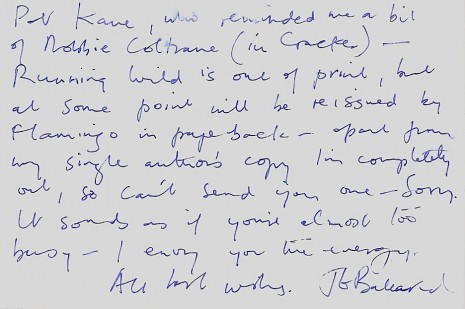 Pat Kane, who reminded me a bit
of Robbie Coltrane (in Cracker) —
Running Wild is out of print, but
at some point will be reissued by
Flamingo in paperback — apart from
my single author's copy I'm completely
out, so can't send you one — Sorry.
It sounds as if you're almost too
busy — I envy you the energy.
All best wishes. JG Ballard